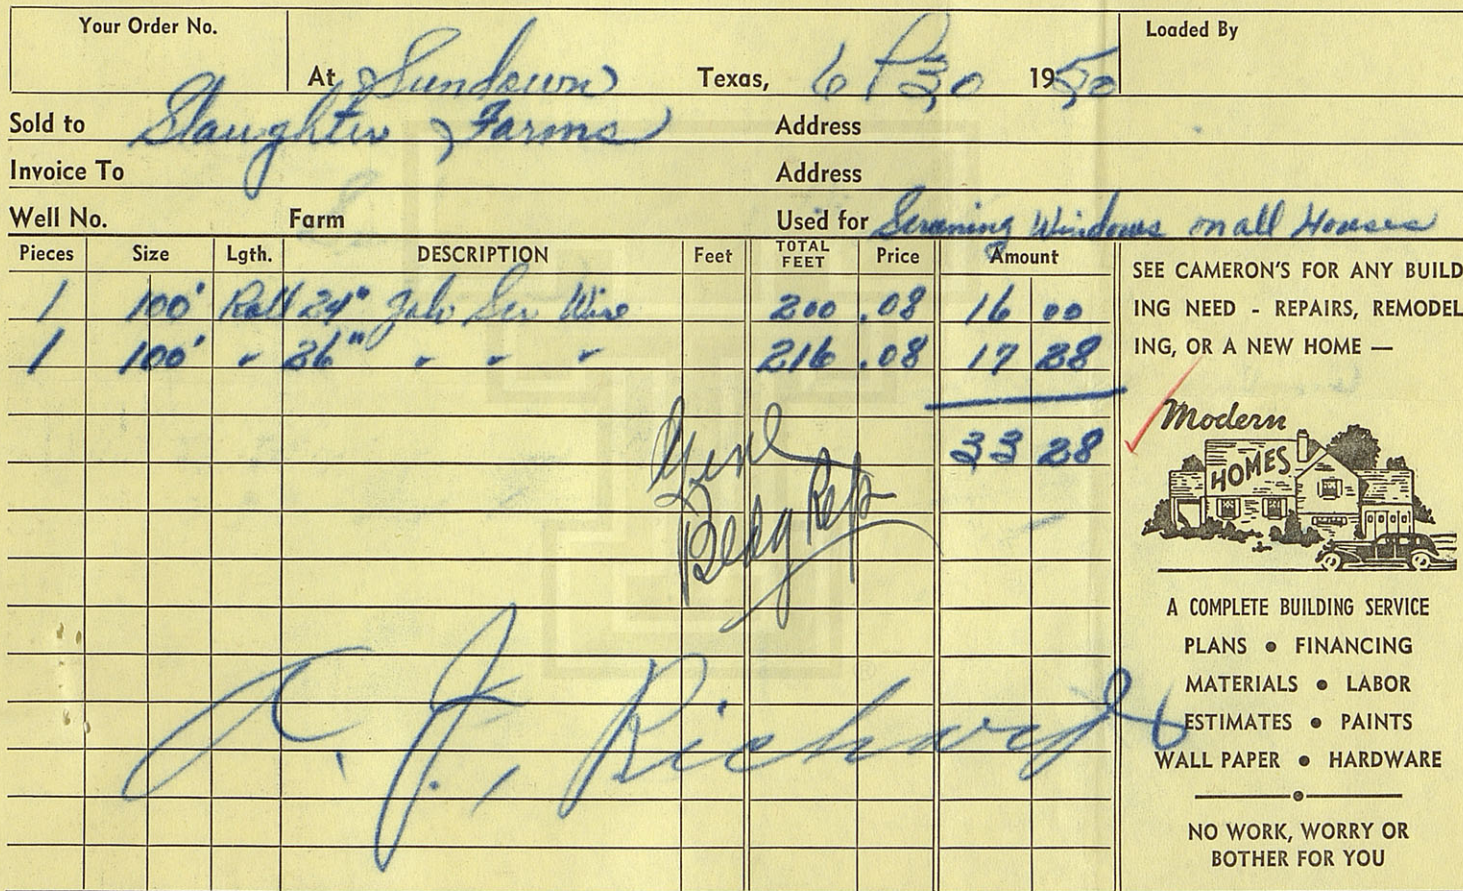 Your Order No.
At Sundown Texas, 6 30 1950
Loaded By
Sold to Slaughter Farms Address
Invoice To Address
Well No. Farm Used for Screening Windows on all Houses
Pieces Size Lgth. DESCRIPTION Feet TOTAL FEET Price Amount
1 100' Roll 24" Galv Scr Wire 200 .08 16 00
1 100' " 26" " " " 216 .08 17 28
33 28
Genl
Bldg Rep
T. J. Richards
SEE CAMERON'S FOR ANY BUILD
ING NEED - REPAIRS, REMODEL
ING, OR A NEW HOME —
Modern
HOMES
A COMPLETE BUILDING SERVICE
PLANS • FINANCING
MATERIALS • LABOR
ESTIMATES • PAINTS
WALL PAPER • HARDWARE
NO WORK, WORRY OR
BOTHER FOR YOU